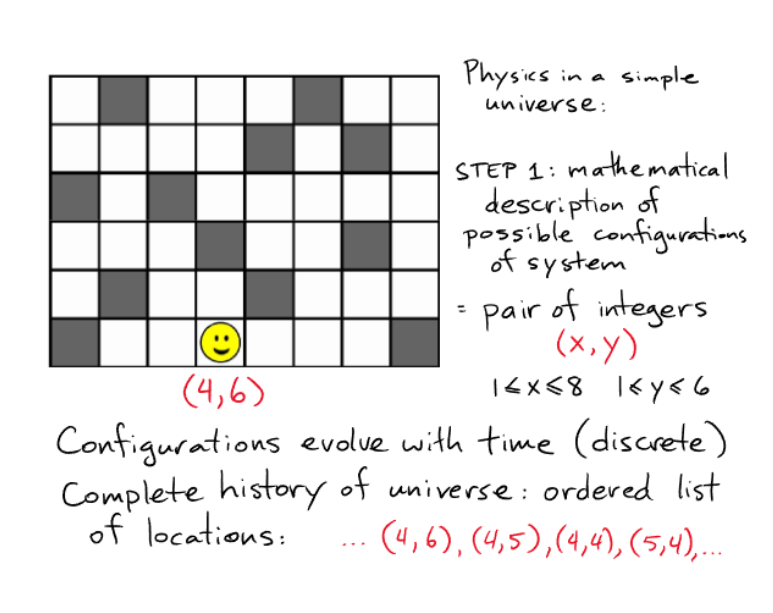 Physics in a simple
universe:
STEP 1: mathematical
description of
possible configurations
of system
= pair of integers
(x,y)
1≤x≤8 1≤y≤6
(4,6)
Configurations evolve with time (discrete)
Complete history of universe: ordered list
of locations: ... (4,6), (4,5), (4,4), (5,4), ...